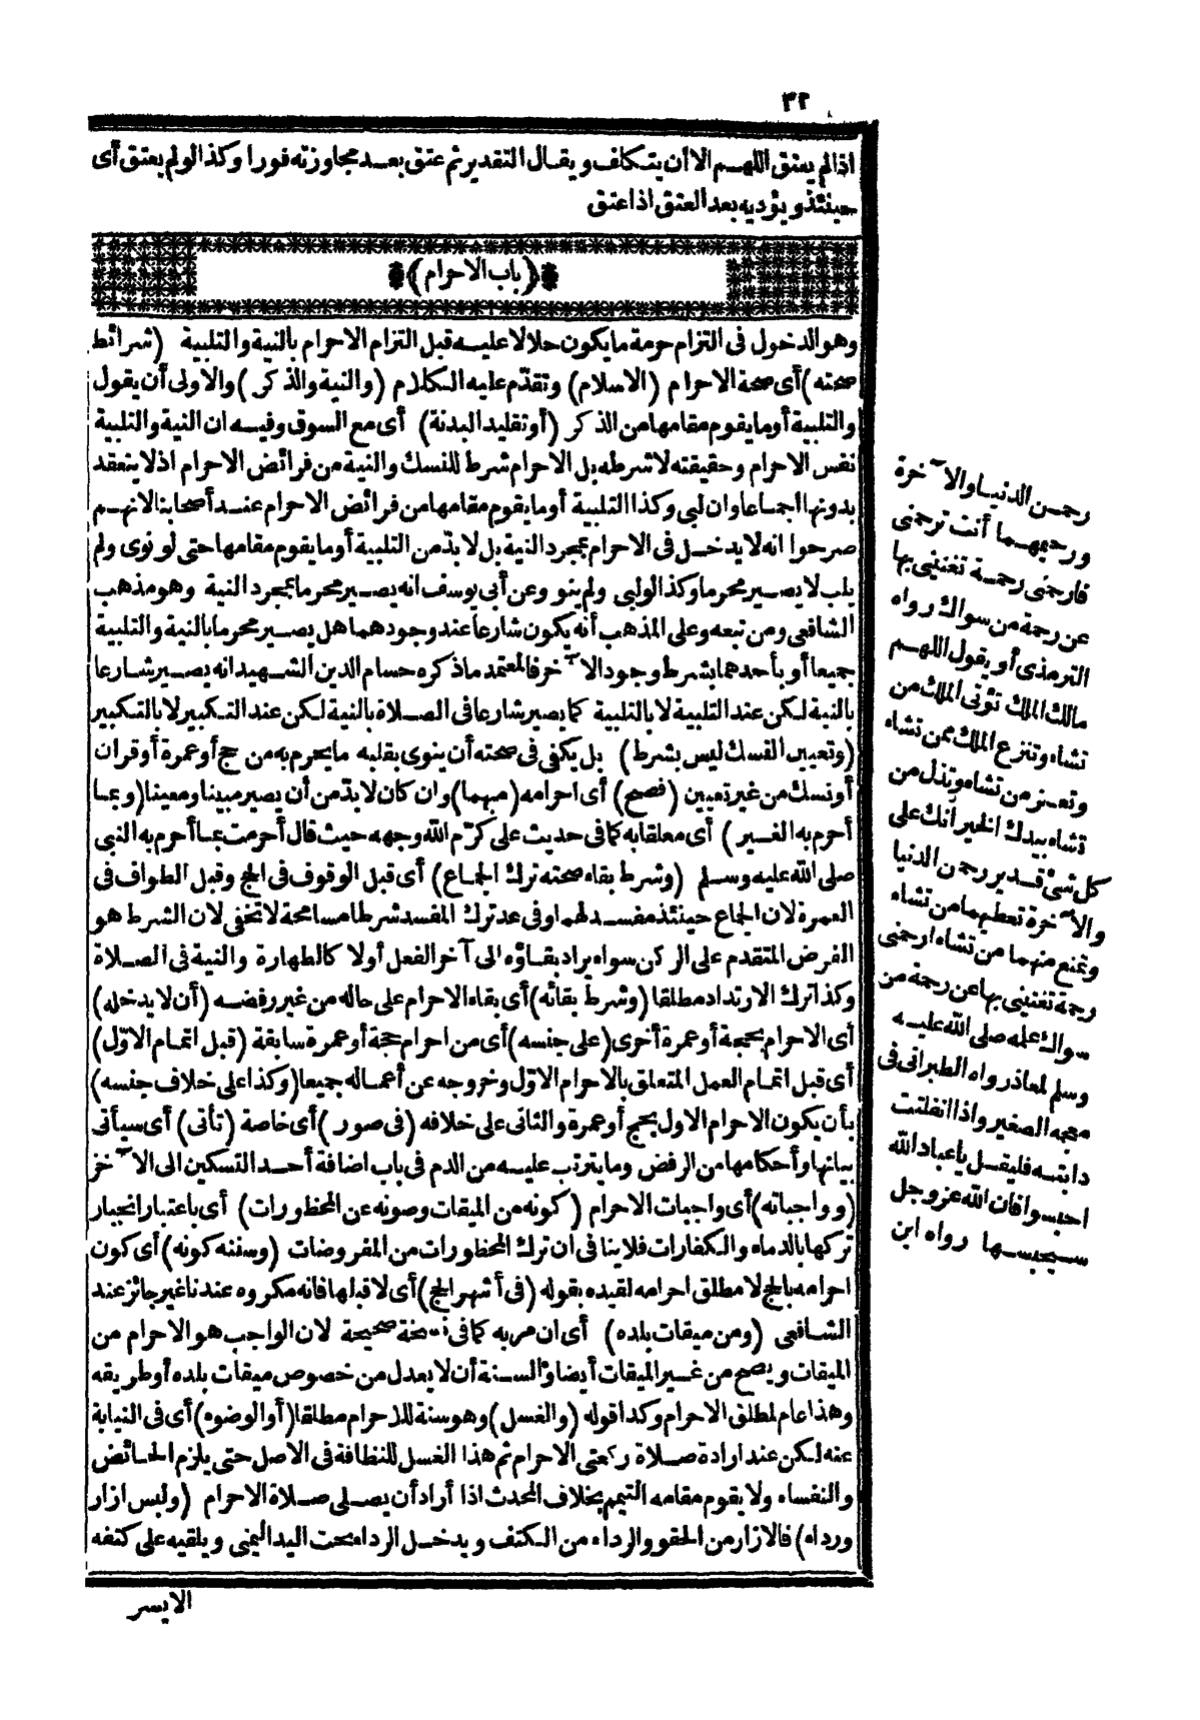 ٣٢
اذا لم يعتق اللهم الا أن يتكلف ويقال التقدير ثم عتق بعد مجاوزته فورا وكذا لو لم يعتق أى
حينئذ ويؤديه بعد العتق اذا عتق
(باب الاحرام)
وهو الدخول فى التزام حرمة ما يكون حلالا عليه قبل التزام الاحرام بالنية والتلبية (شرائط
صحته) أى صحة الاحرام (الاسلام) وتقدّم عليه الكلام (والنية والذكر) والاولى أن يقول
والتلبية أو ما يقوم مقامها من الذكر (أو تقليد البدنة) أى مع السوق وفيه ان النية والتلبية
نفس الاحرام وحقيقته لا شرطه بل الاحرام شرط للنسك والنية من فرائض الاحرام اذ لا ينعقد
بدونها اجماعا وان لبى وكذا التلبية أو ما يقوم مقامها من فرائض الاحرام عند أصحابنا لانهم
صرحوا انه لا يدخل فى الاحرام بمجرد النية بل لا بدّ من التلبية أو ما يقوم مقامها حتى لو نوى ولم
يلب لا يصير محرما وكذا لو لبى ولم ينو وعن أبى يوسف انه يصير محرما بمجرد النية وهو مذهب
الشافعى ومن تبعه وعلى المذهب أنه يكون شارعا عند وجودهما هل يصير محرما بالنية والتلبية
جميعا أو بأحدهما بشرط وجود الآخر فالمعتمد ما ذكره حسام الدين الشهيد انه يصير شارعا
بالنية لكن عند التلبية لا بالتلبية كما يصير شارعا فى الصلاة بالنية لكن عند التكبير لا بالتكبير
(وتعيين النسك ليس بشرط) بل يكفى فى صحته أن ينوى بقلبه ما يحرم به من حج أو عمرة أو قران
أو نسك من غير تعيين (فصح) أى احرامه (مبهما) وان كان لا بدّ من أن يصير مبينا ومعينا (وبما
أحرم به الغير) أى معلقا به كما فى حديث على كرّم الله وجهه حيث قال أحرمت بما أحرم به النبى
صلى الله عليه وسلم (وشرط بقاء صحته ترك الجماع) أى قبل الوقوف فى الحج وقبل الطواف فى
العمرة لان الجماع حينئذ مفسد لهما وفى عد ترك المفسد شرطا مسامحة لا تخفى لان الشرط هو
الفرض المتقدم على الركن سواء يراد بقاؤه الى آخر الفعل أولا كالطهارة والنية فى الصلاة
وكذا ترك الارتداد مطلقا (وشرط بقائه) أى بقاء الاحرام على حاله من غير رفضه (أن لا يدخله)
أى الاحرام بحجة أو عمرة أخرى (على جنسه) أى من احرام حجة أو عمرة سابقة (قبل اتمام الاوّل)
أى قبل اتمام العمل المتعلق بالاحرام الاوّل وخروجه عن أعماله جميعا (وكذا على خلاف جنسه)
بأن يكون الاحرام الاول بحج أو عمرة والثانى على خلافه (فى صور) أى خاصة (تأتى) أى سيأتى
بيانها وأحكامها من الرفض وما يترتب عليه من الدم فى باب اضافة أحد النسكين الى الآخر
(وواجباته) أى واجبات الاحرام (كونه من الميقات وصونه عن المحظورات) أى باعتبار انجبار
تركها بالدماء والكفارات فلا ينافى ان ترك المحظورات من المفروضات (وسننه كونه) أى كون
احرامه بالحج لا مطلق احرامه لقيده بقوله (فى أشهر الحج) أى لا قبلها فانه مكروه عندنا غير جائز عند
الشافعى (ومن ميقات بلده) أى ان مر به كما فى نسخة صحيحة لان الواجب هو الاحرام من
الميقات ويصح من غير الميقات أيضا والسنة أن لا يعدل من خصوص ميقات بلده أو طريقه
وهذا عام لمطلق الاحرام وكذا قوله (والغسل) وهو سنة للاحرام مطلقا (أو الوضوء) أى فى النيابة
عنه لكن عند ارادة صلاة ركعتى الاحرام ثم هذا الغسل للنظافة فى الاصل حتى يلزم الحائض
والنفساء ولا يقوم مقامه التيمم بخلاف المحدث اذا أراد أن يصلى صلاة الاحرام (ولبس ازار
ورداء) فالازار من الحقو والرداء من الكتف ويدخل الرداء تحت اليد اليمنى ويلقيه على كتفه
الايسر
رحمن الدنيا والآخرة
ورحيمهما أنت ترحمنى
فارحمنى رحمة تغنينى بها
عن رحمة من سواك رواه
الترمذى أو يقول اللهم
مالك الملك تؤتى الملك من
تشاء وتنزع الملك ممن تشاء
وتعز من تشاء وتذل من
تشاء بيدك الخير انك على
كل شئ قدير رحمن الدنيا
والآخرة تعطيهما من تشاء
وتمنع منهما من تشاء ارحمنى
رحمة تغنينى بها عن رحمة من
سواك علمه صلى الله عليه
وسلم لمعاذ رواه الطبرانى فى
معجمه الصغير واذا انفلتت
دابته فليقل يا عباد الله
احبسوا فان الله عز وجل
سيحبسها رواه ابن